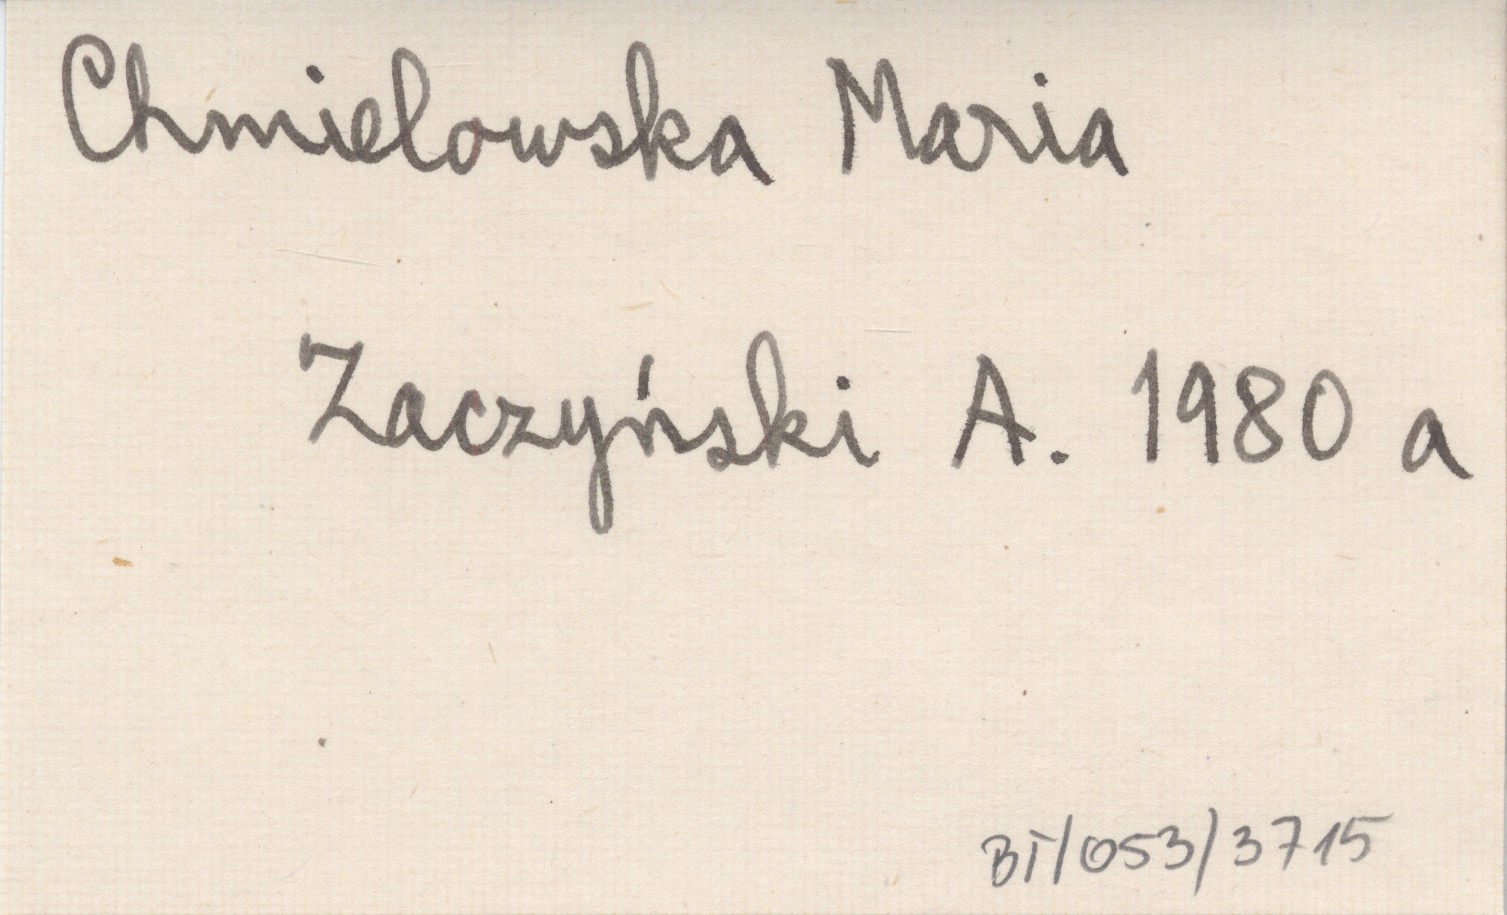 Chmielowska Maria
Zaczyński A. 1980 a
BI/053/3715